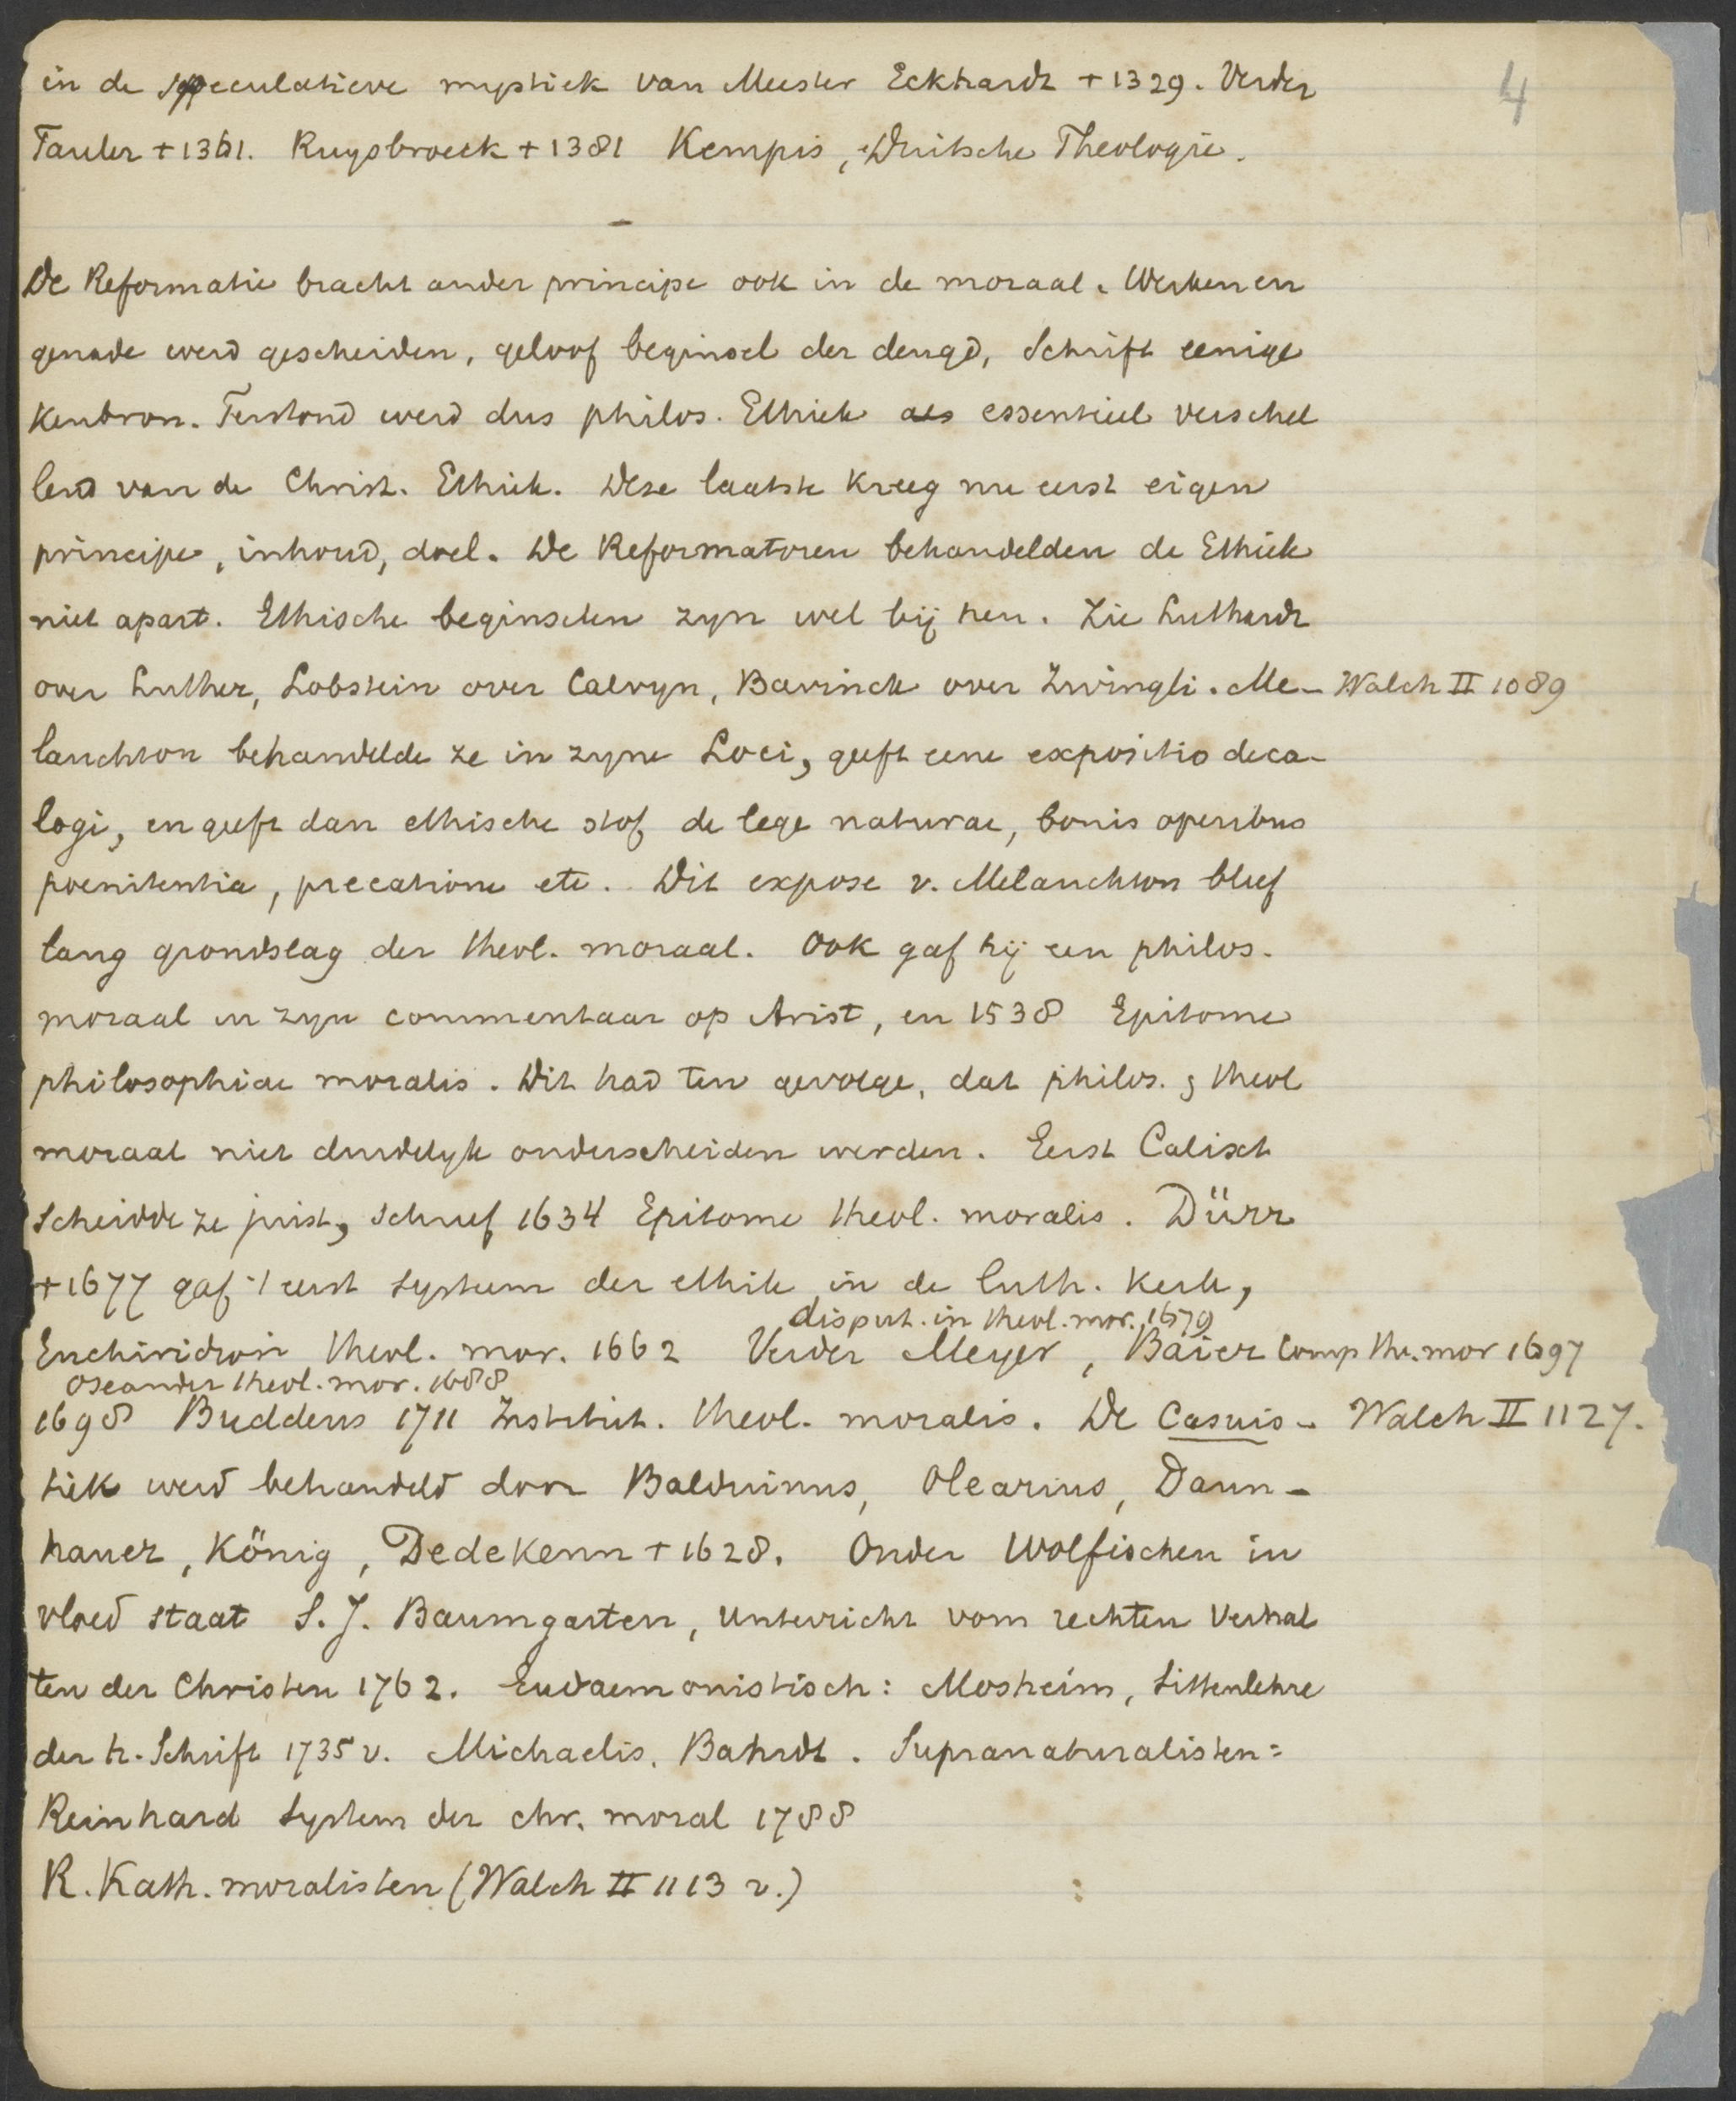 4
in de speculatieve mystiek van Meester Eckhardt + 1329. Verder
Tauler + 1361. Ruysbroeck + 1381 Kempis, Duitsche Theologie.
De Reformatie bracht ander principe ook in de moraal. Werken en
genade werd gescheiden, geloof beginsel der deugd, Schrift eenige
Kenbron. Terstond werd dus philos. Ethiek als essentieel verschil
lend van de Christ. Ethiek. Deze laatste kreeg nu eerst eigen
principe, inhoud, doel. De Reformatoren behandelden de Ethiek
niet apart. Ethische beginselen zyn wel bij hen. Zie Luthardt
over Luther, Lobstein over Calvyn, Bavinck over Zwingli. Me- Walch II 1089
lanchton behandelde ze in zyne Loci, geeft eene expositio deca-
logi, en geeft dan ethische stof, de lege naturae, bonis operibus
poenitentia, precatione etc. Dit expose v. Melanchton bleef
lang grondslag der theol. moraal. Ook gaf hij een philos.
moraal in zyn commentaar op Arist, en 1538 Epitome
philosophiae moralis. Dit had ten gevolge, dat philos. & theol
moraal niet duidelyk onderscheiden werden. Eerst Calixt
scheidde ze juist, schreef 1634 Epitome theol. moralis. Dürr
+ 1677 gaf 't eerst systeem der ethiek in de luth. Kerk,
disput. in theol. mor. 1679
Enchiridion theol. mor. 1662 Verder Meyer, Baier Comp th. mor 1697
Oseander theol. mor. 1688
1698 Buddeus 1711 Institut. theol. moralis. De Casuis- Walch II 1127.
tiek werd behandeld door Balduinus, Olearius, Dann-
hauer, König, Dedekenn + 1628. Onder Wolfischen in
vloed staat S. J. Baumgarten, Unterricht vom rechten Verhal
ten der Christen 1762. Eudaemonistisch: Mosheim, Sittenlehre
der h. Schrift 1735 v. Michaelis, Bahrdt. Supranaturalisten:
Reinhard System der chr. moral 1788
R. Kath. moralisten (Walch II 1113 v.)